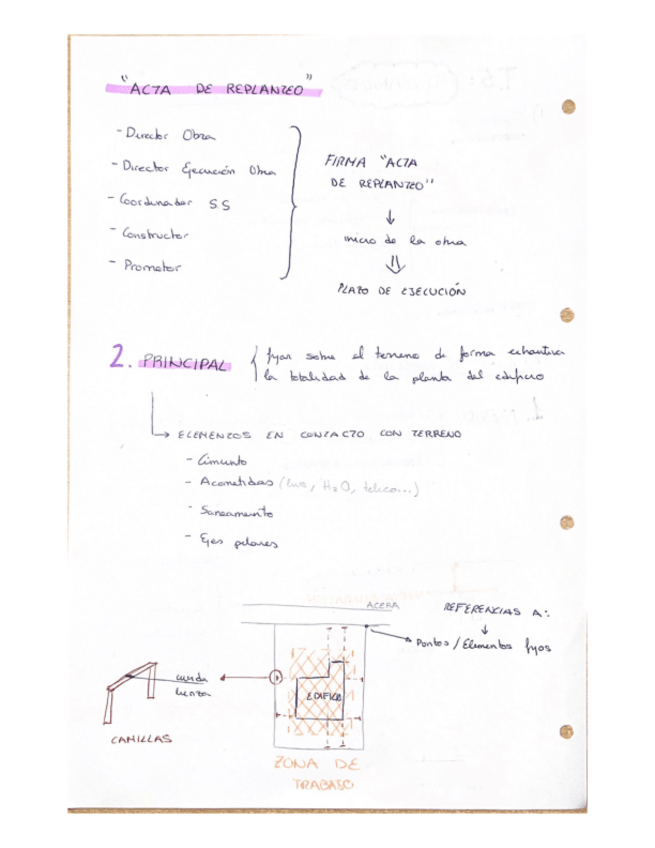 "ACTA DE REPLANTEO"
- Director Obra
- Director Ejecución Obra
- Coordinador S.S
- Constructor
- Promotor
FIRMA "ACTA
DE REPLANTEO"
inicio de la obra
PLAZO DE EJECUCIÓN
2. PRINCIPAL
fijar sobre el terreno de forma exhaustiva
la totalidad de la planta del edificio
ELEMENTOS EN CONTACTO CON TERRENO
- Cimiento
- Acometidas (luz, H2O, teleco...)
- Saneamiento
- Ejes pilares
ACERA
REFERENCIAS A:
Puntos / Elementos fijos
cuerda
lienza
EDIFICIO
CAMILLAS
ZONA DE
TRABAJO